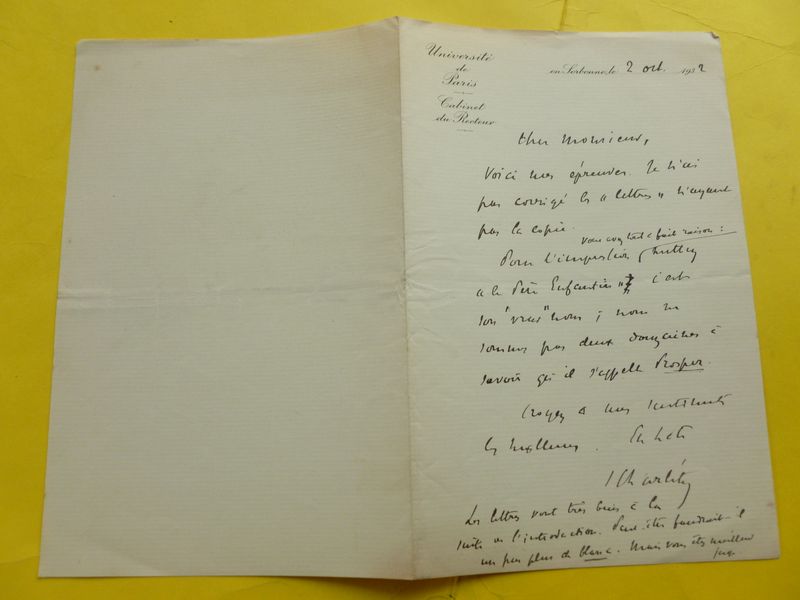 Université
de
Paris
Cabinet
du Recteur
en Sorbonne, le 2 oct. 1932
Cher Monsieur,
Voici mes épreuves. Je n'ai
pas corrigé les "lettres" n'ayant
pas la copie.
vous avez tout à fait raison :
Pour l'impression, mettez
"le Père Enfantin" c'est
son "vrai" nom ; nous ne
sommes pas deux douzaines à
savoir qu'il s'appelle Prosper.
Croyez à mes sentiments
les meilleurs. En hâte
S Charléty
Les lettres vont très bien à la
suite de l'introduction. Peut-être faudrait-il
un peu plus de blanc. Mais vous êtes meilleur
juge.